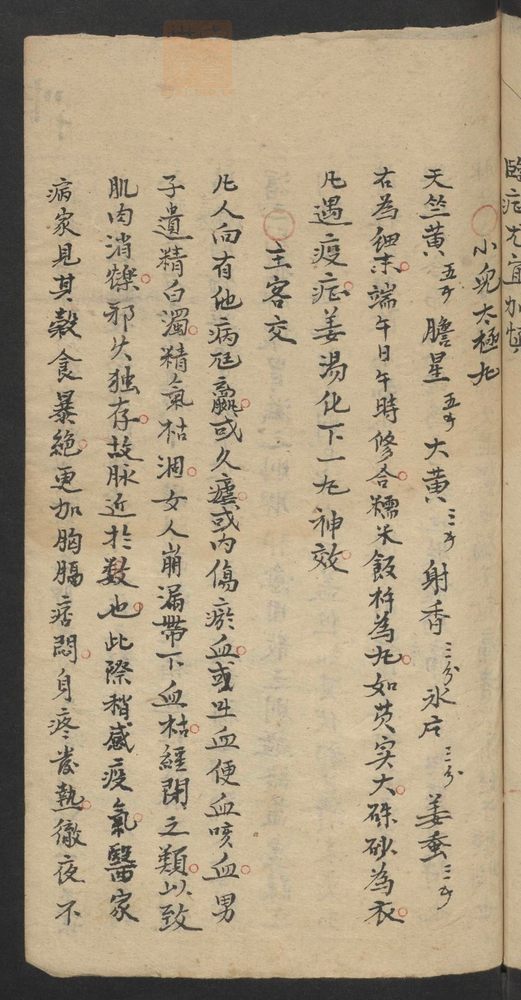 臨症尤宜加慎
小兒太極丸
天竺黄五錢 膽星五錢 大黄三錢 射香三分 氷片三分 姜蚕三錢
右為細末端午日午時修合糯米飯杵為丸如芡实大硃砂為衣
凡遇疫症姜湯化下一丸神效
主客交
凡人向有他病尫羸或久瘧或内傷瘀血或吐血便血咳血男
子遺精白濁精氣枯涸女人崩漏帶下血枯經閉之類以致
肌肉消爍邪火独存故脉近於数也此際稍感疫氣醫家
病家見其穀食暴絶更加胸膈痞悶身疼發熱徹夜不